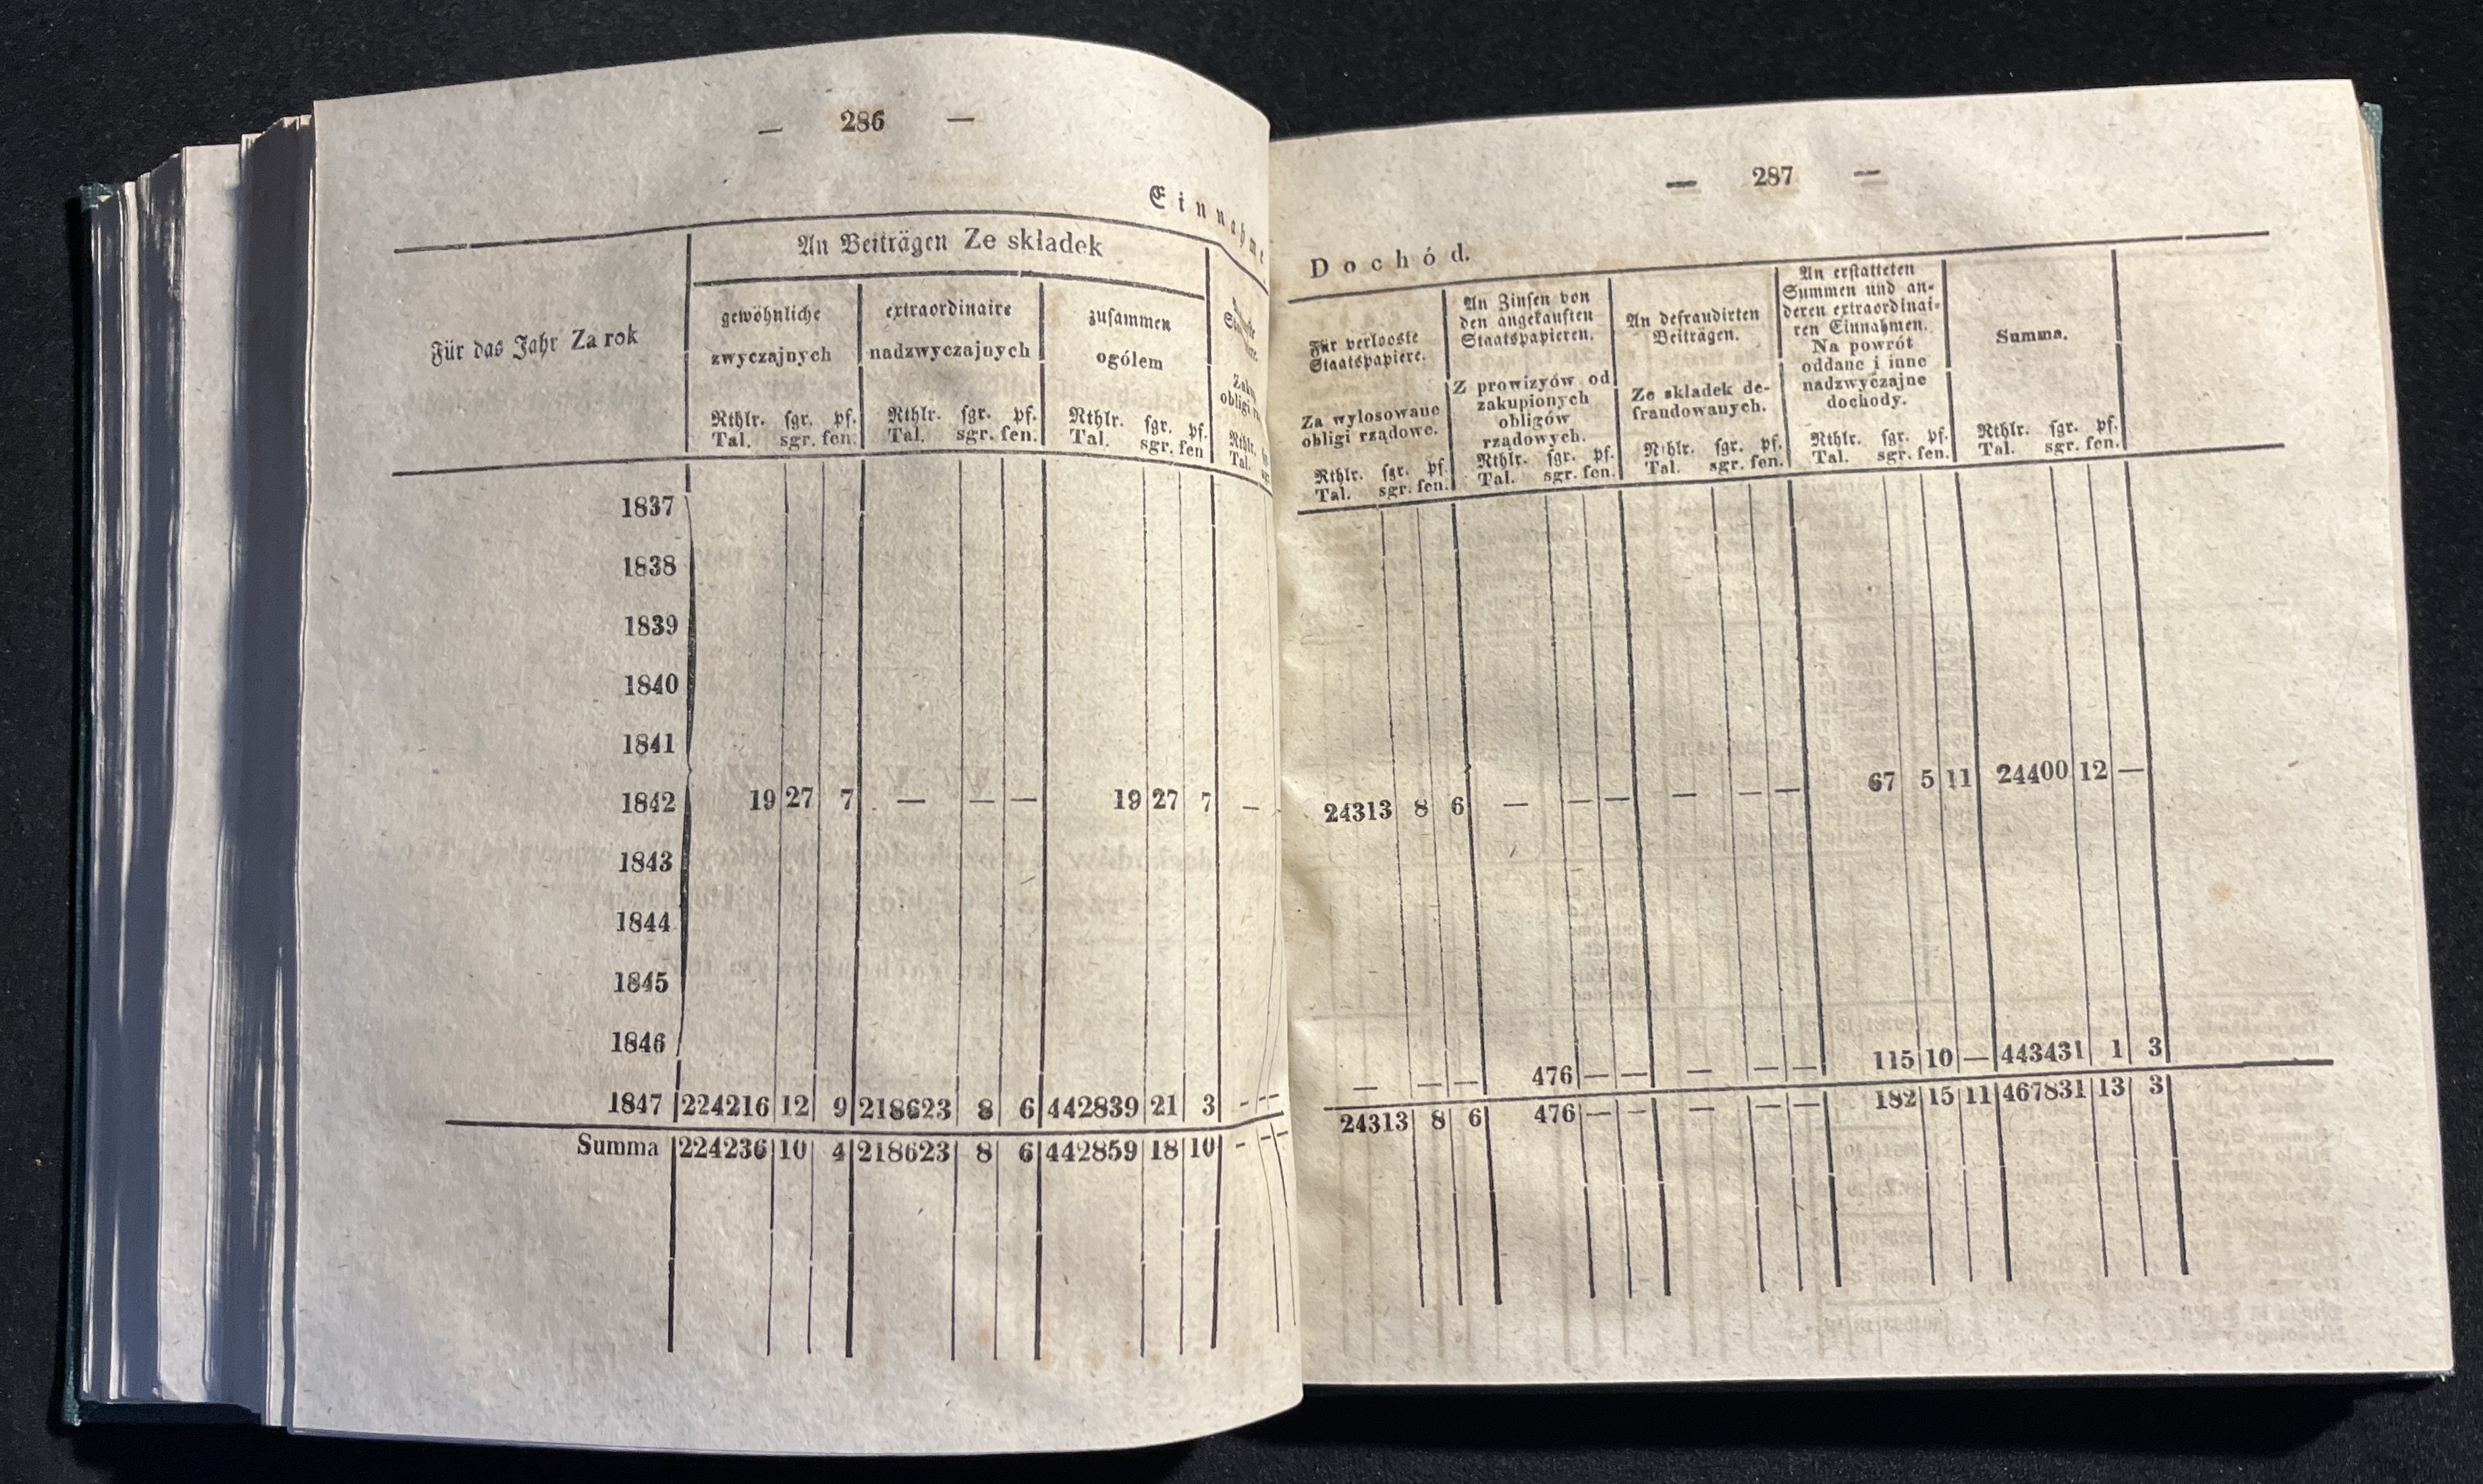 — 286 —
Einnahme
An Beiträgen Ze składek
Für das Jahr Za rok
gewöhnliche
zwyczajnych
Rthlr. sgr. pf.
Tal. sgr. fen.
extraordinaire
nadzwyczajnych
Rthlr. sgr. pf.
Tal. sgr. fen.
zusammen
ogółem
Rthlr. sgr. pf.
Tal. sgr. fen
obligi
Rthlr.
Tal.
1837
1838
1839
1840
1841
1842 19 27 7 — — — 19 27 7 —
1843
1844
1845
1846
1847 224216 12 9 218623 8 6 442839 21 3 - - -
Summa 224236 10 4 218623 8 6 442859 18 10 - - -
— 287 —
Dochód.
Für verlooste
Staatspapiere.
Za wylosowane
obligi rządowe.
Rthlr. sgr. pf.
Tal. sgr. fen.
An Zinsen von
den angekauften
Staatspapieren.
Z prowizyów od
zakupionych
obligów
rządowych.
Rthlr. sgr. pf.
Tal. sgr. fen.
An defraudirten
Beiträgen.
Ze składek de-
fraudowanych.
Rthlr. sgr. pf.
Tal. sgr. fen.
An erstatteten
Summen und an-
deren extraordinai-
ren Einnahmen.
Na powrót
oddane i inne
nadzwyczajne
dochody.
Rthlr. sgr. pf.
Tal. sgr. fen.
Summa.
Rthlr. sgr. pf.
Tal. sgr. fen.
24313 8 6 — — — — — — 67 5 11 24400 12 —
— — — 476 — — — — — 115 10 — 443431 1 3
24313 8 6 476 — — — — — 182 15 11 467831 13 3